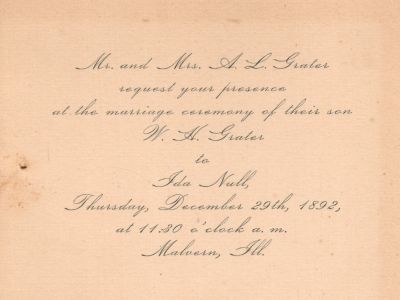 Mr. and Mrs. A. L. Grater
request your presence
at the marriage ceremony of their son
W. H. Grater
to
Ida Null,
Thursday, December 29th, 1892,
at 11:30 o'clock a. m.
Malvern, Ill.